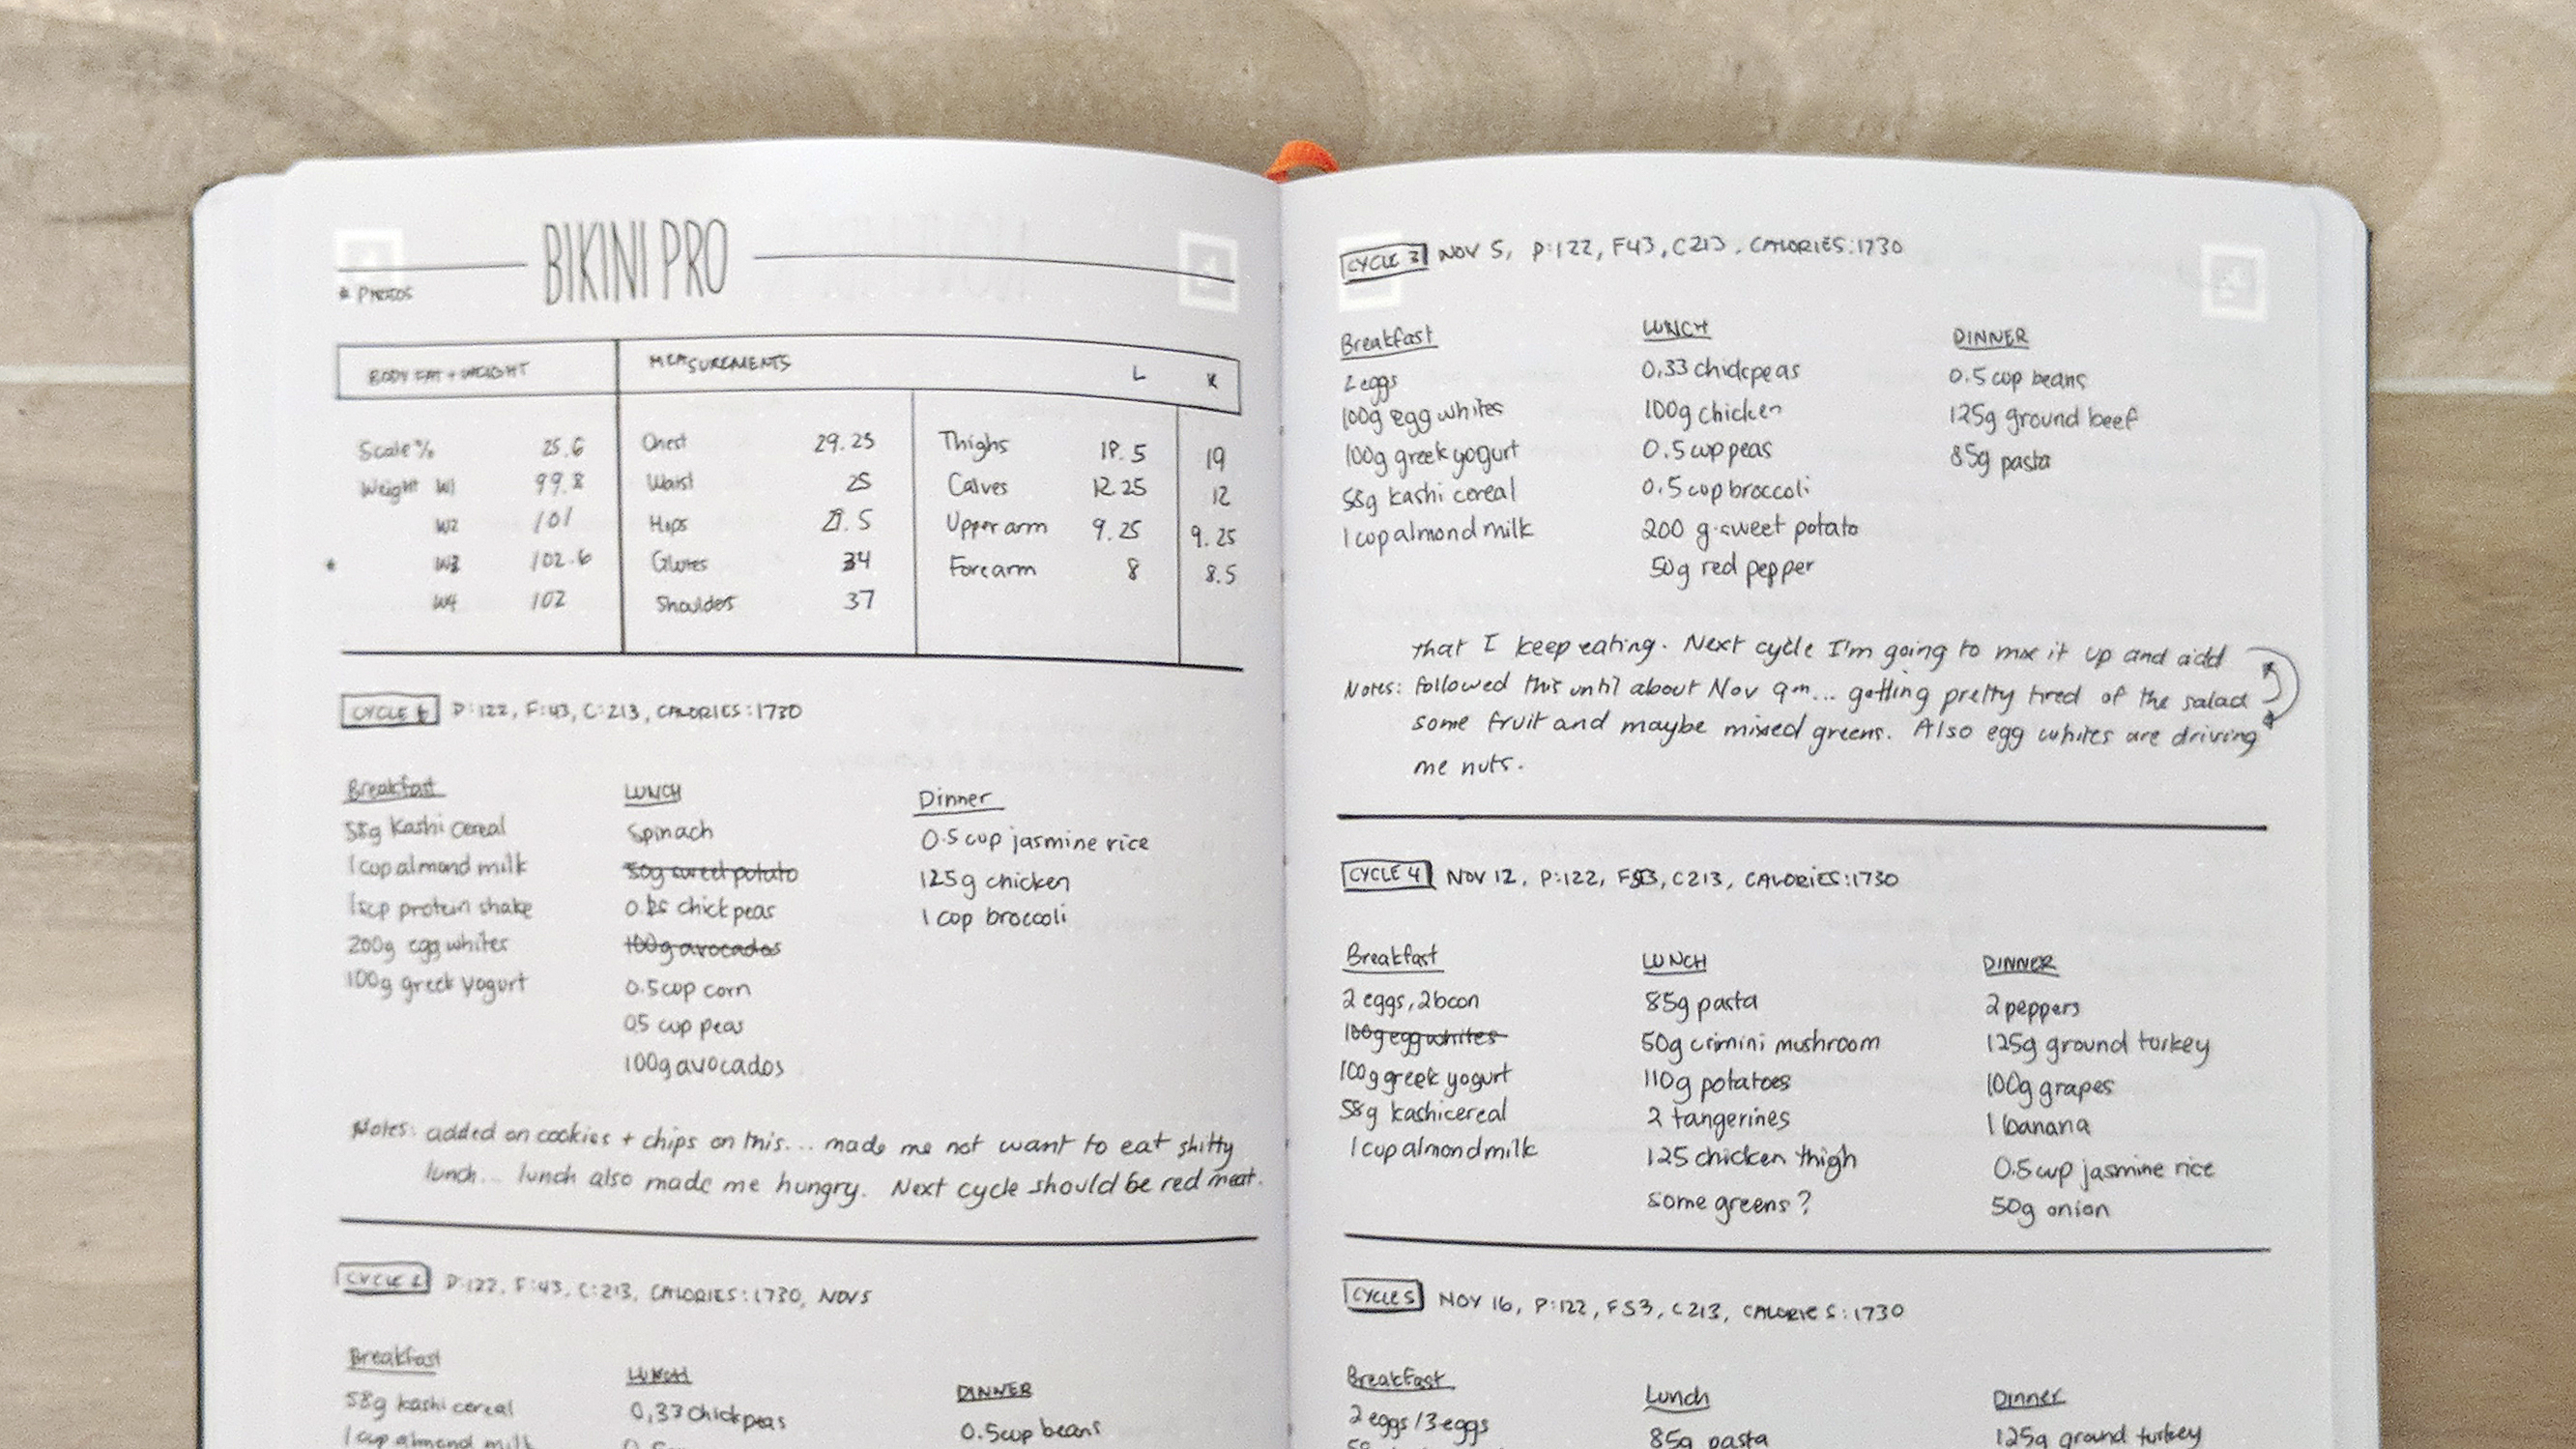 BIKINI PRO
* PHOTOS
BODY FAT + WEIGHT
MEASUREMENTS L R
Scale % 25.6
Weight W1 99.8
W2 101
* W3 102.6
W4 102
Chest 29.25
Waist 25
Hips 29.5
Glutes 34
Shoulders 37
Thighs 18.5 19
Calves 12.25 12
Upper arm 9.25 9.25
Forearm 8 8.5
CYCLE P:122, F:43, C:213, CALORIES:1730
Breakfast
58g Kashi cereal
1 cup almond milk
protein shake
200g egg whites
100g greek yogurt
LUNCH
Spinach
50g sweet potato
chickpeas
100g avocados
0.5cup corn
0.5 cup peas
100g avocados
Dinner
0.5 cup jasmine rice
125g chicken
1 cup broccoli
Notes: added on cookies + chips on this... made me not want to eat shitty
lunch... lunch also made me hungry. Next cycle should be red meat.
CYCLE 2 P:122, F:43, C:213, CALORIES:1730, NOV 5
Breakfast
58g kashi cereal
1 cup almond milk
LUNCH
0,33 chickpeas
DINNER
0.5cup beans
CYCLE 3 NOV 5, P:122, F43, C213, CALORIES:1730
Breakfast
2 eggs
100g egg whites
100g greek yogurt
58g kashi cereal
1 cup almond milk
LUNCH
0.33 chickpeas
100g chicken
0.5 cup peas
0.5 cup broccoli
200 g sweet potato
50g red pepper
DINNER
0.5 cup beans
125g ground beef
85g pasta
that I keep eating. Next cycle I'm going to mix it up and add
Notes: followed this until about Nov 9th... getting pretty tired of the salad
some fruit and maybe mixed greens. Also egg whites are driving
me nuts.
CYCLE 4 NOV 12, P:122, F53, C213, CALORIES:1730
Breakfast
2 eggs, 2 bcon
100g egg whites
100g greek yogurt
58g kashi cereal
1 cup almond milk
LUNCH
85g pasta
50g crimini mushroom
110g potatoes
2 tangerines
125 chicken thigh
some greens?
DINNER
2 peppers
125g ground turkey
100g grapes
1 banana
0.5 cup jasmine rice
50g onion
CYCLE 5 NOV 16, P:122, F53, C213, CALORIES:1730
Breakfast
2 eggs / 3 eggs
Lunch
85g pasta
Dinner
125g ground turkey